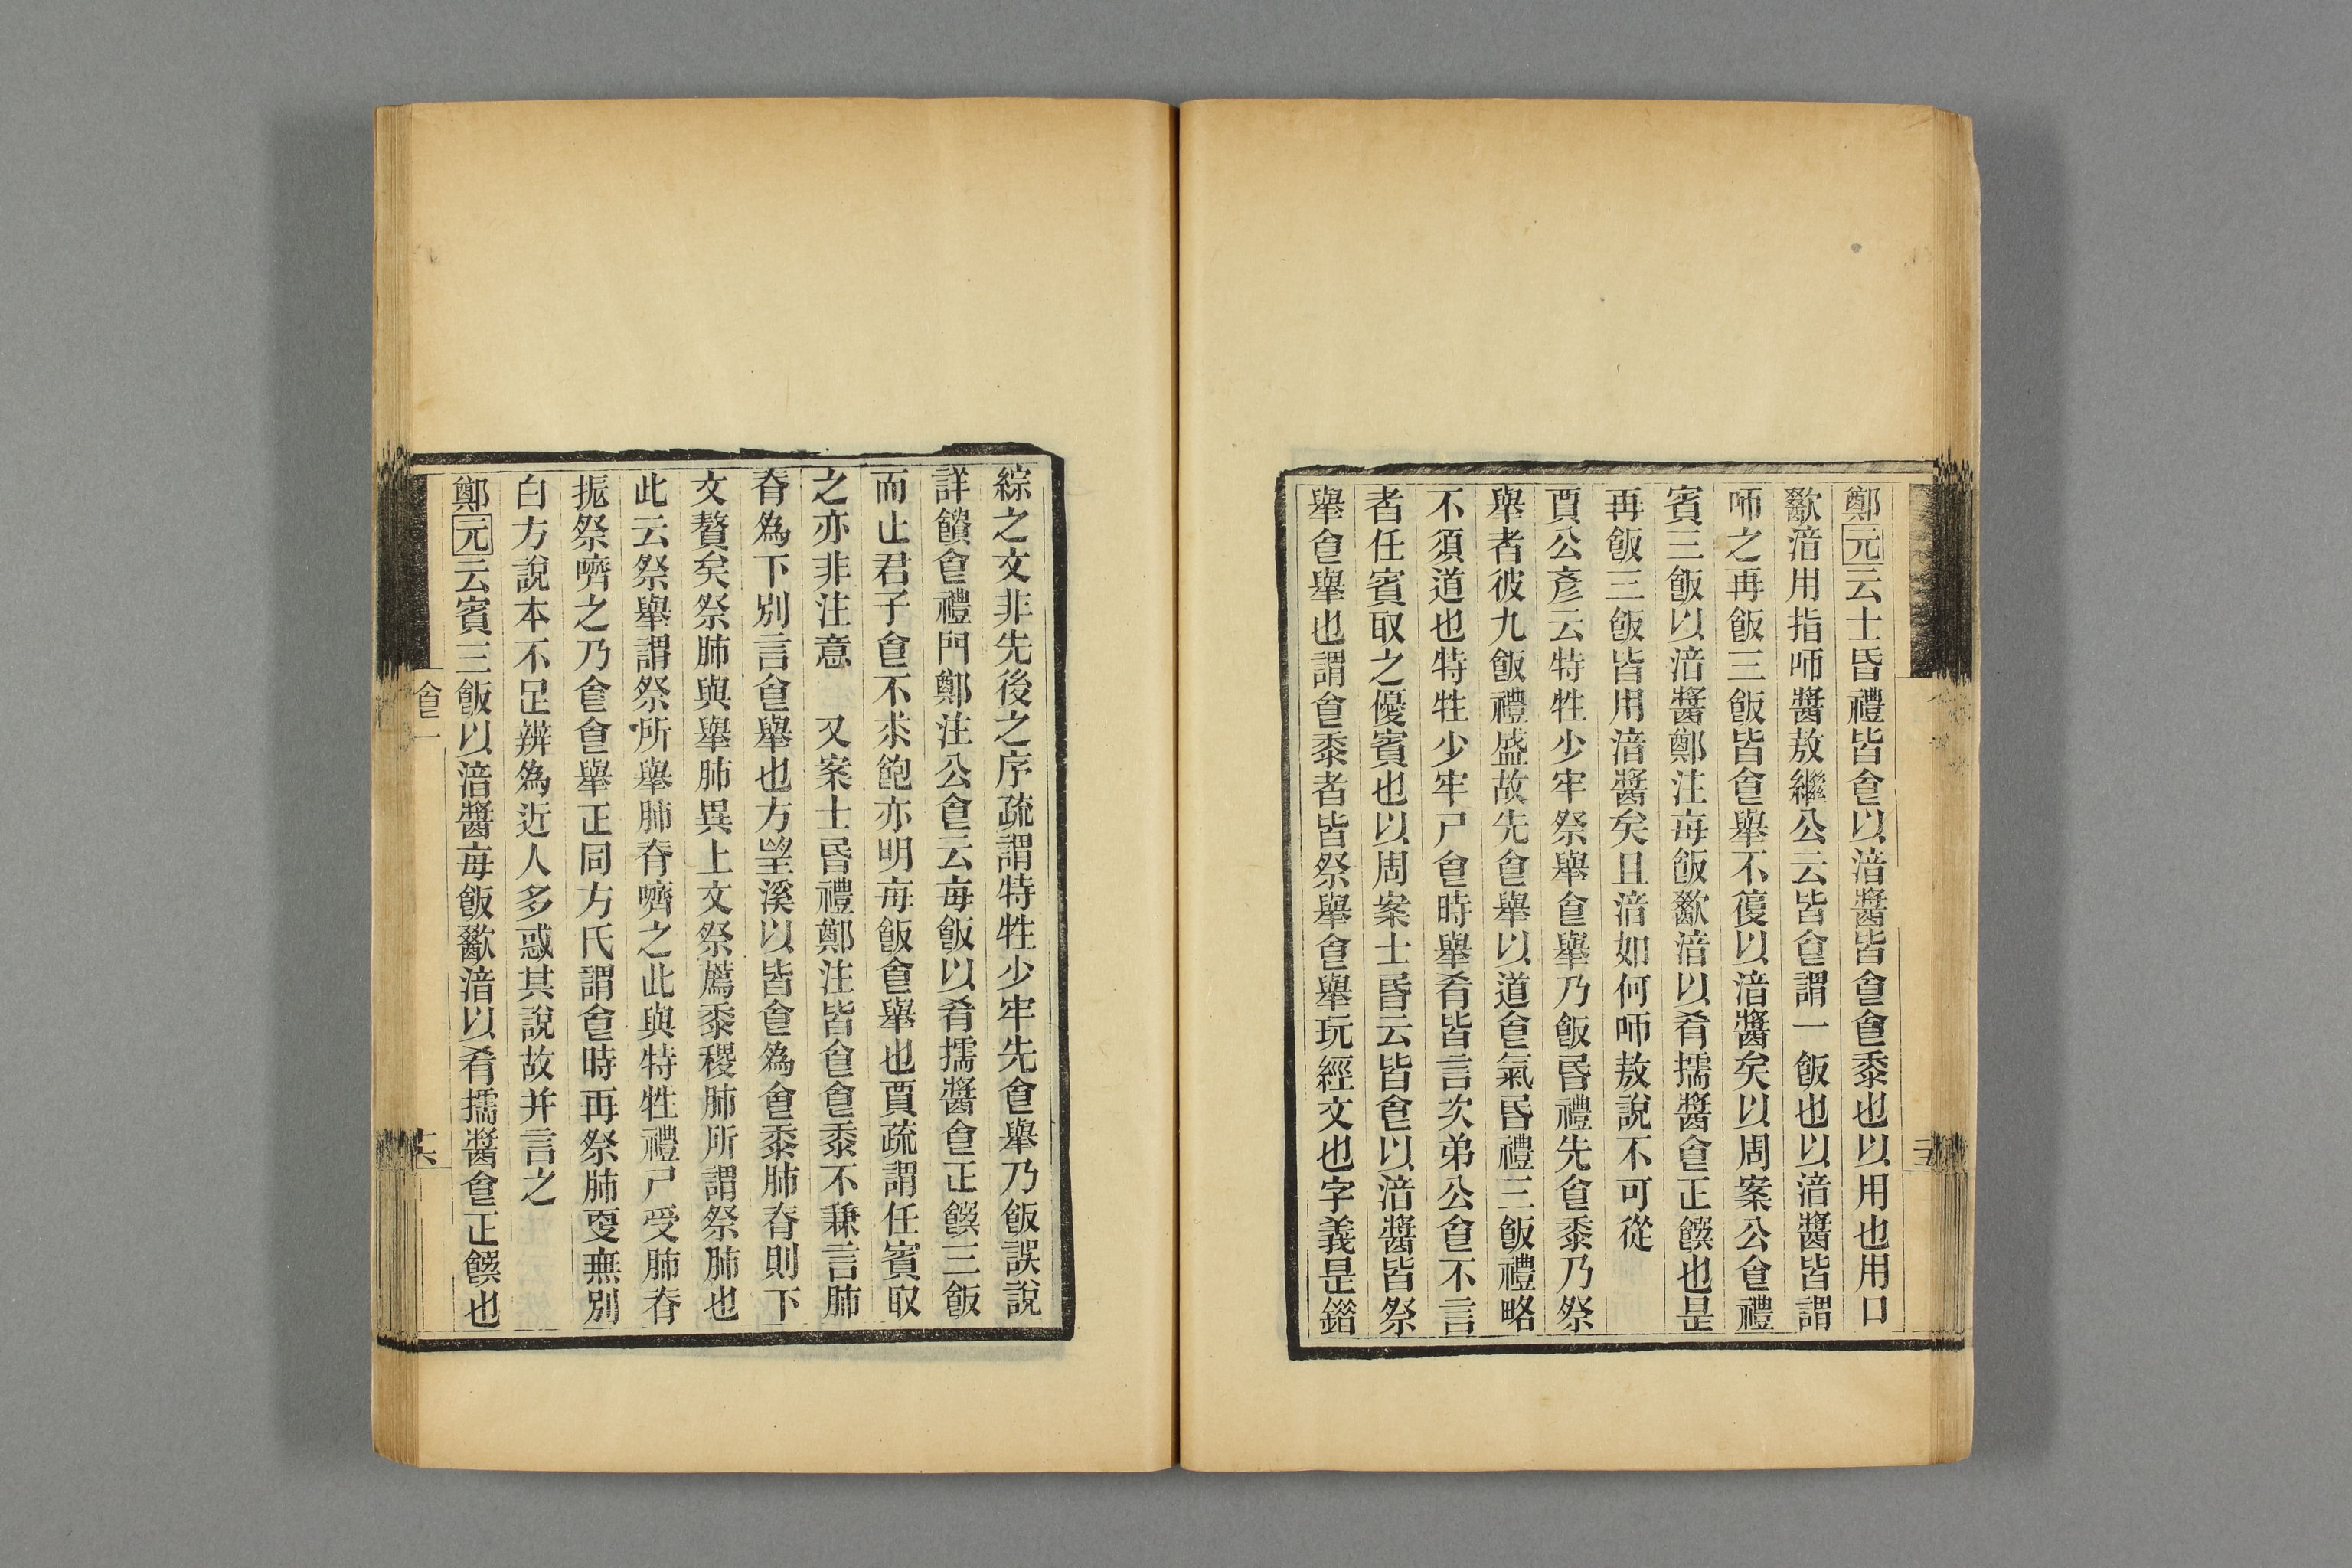 鄭元云士昏禮皆食以湆醬皆食食黍也以用也用口
歠湆用指咂醬敖繼公云皆食謂一飯也以湆醬皆謂
咂之再飯三飯皆食舉不復以湆醬矣以周案公食禮
賓三飯以湆醬鄭注每飯歠湆以肴擩醬食正饌也是
再飯三飯皆用湆醬矣且湆如何咂敖說不可從
賈公彥云特牲少牢祭舉食舉乃飯昏禮先食黍乃祭
舉者彼九飯禮盛故先食舉以道食氣昏禮三飯禮略
不須道也特牲少牢尸食時舉肴皆言次弟公食不言
者任賓取之優賓也以周案士昏云皆食以湆醬皆祭
舉食舉也謂食黍者皆祭舉食舉玩經文也字義是錯
綜之文非先後之序疏謂特牲少牢先食舉乃飯誤說
詳饋食禮門鄭注公食云每飯以肴擩醬食正饌三飯
而止君子食不求飽亦明每飯食舉也賈疏謂任賓取
之亦非注意　又案士昏禮鄭注皆食食黍不兼言肺
脊爲下別言食舉也方望溪以皆食爲食黍肺脊則下
文贅矣祭肺與舉肺異上文祭薦黍稷肺所謂祭肺也
此云祭舉謂祭所舉肺脊嚌之此與特牲禮尸受肺脊
振祭嚌之乃食食舉正同方氏謂食時再祭肺更無別
白方說本不足辨爲近人多惑其說故并言之
鄭元云賓三飯以湆醬每飯歠湆以肴擩醬食正饌也
食一
十六